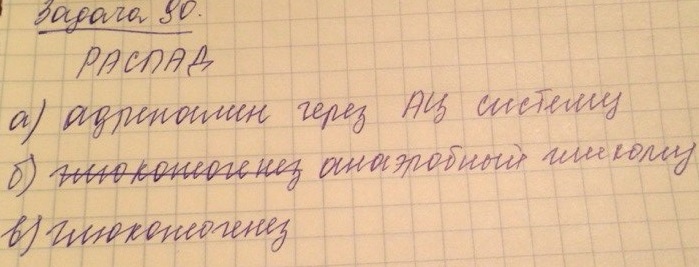 Задача 90.
РАСПАД
а) адреналин через АЦ систему
б) глюконеогенез анаэробный гликолиз
в) глюконеогенез